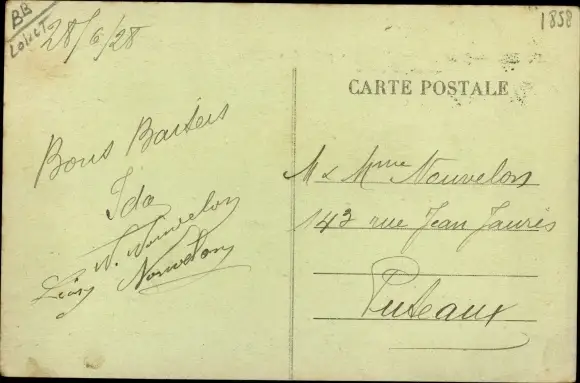 BB
LOIRET
28/6/28
1858
CARTE POSTALE
Bons Baisers
Ida
N. Nouvelon
Léon Nouvelon
M & Mme Nouvelon
143 rue Jean Jaurès
Puteaux